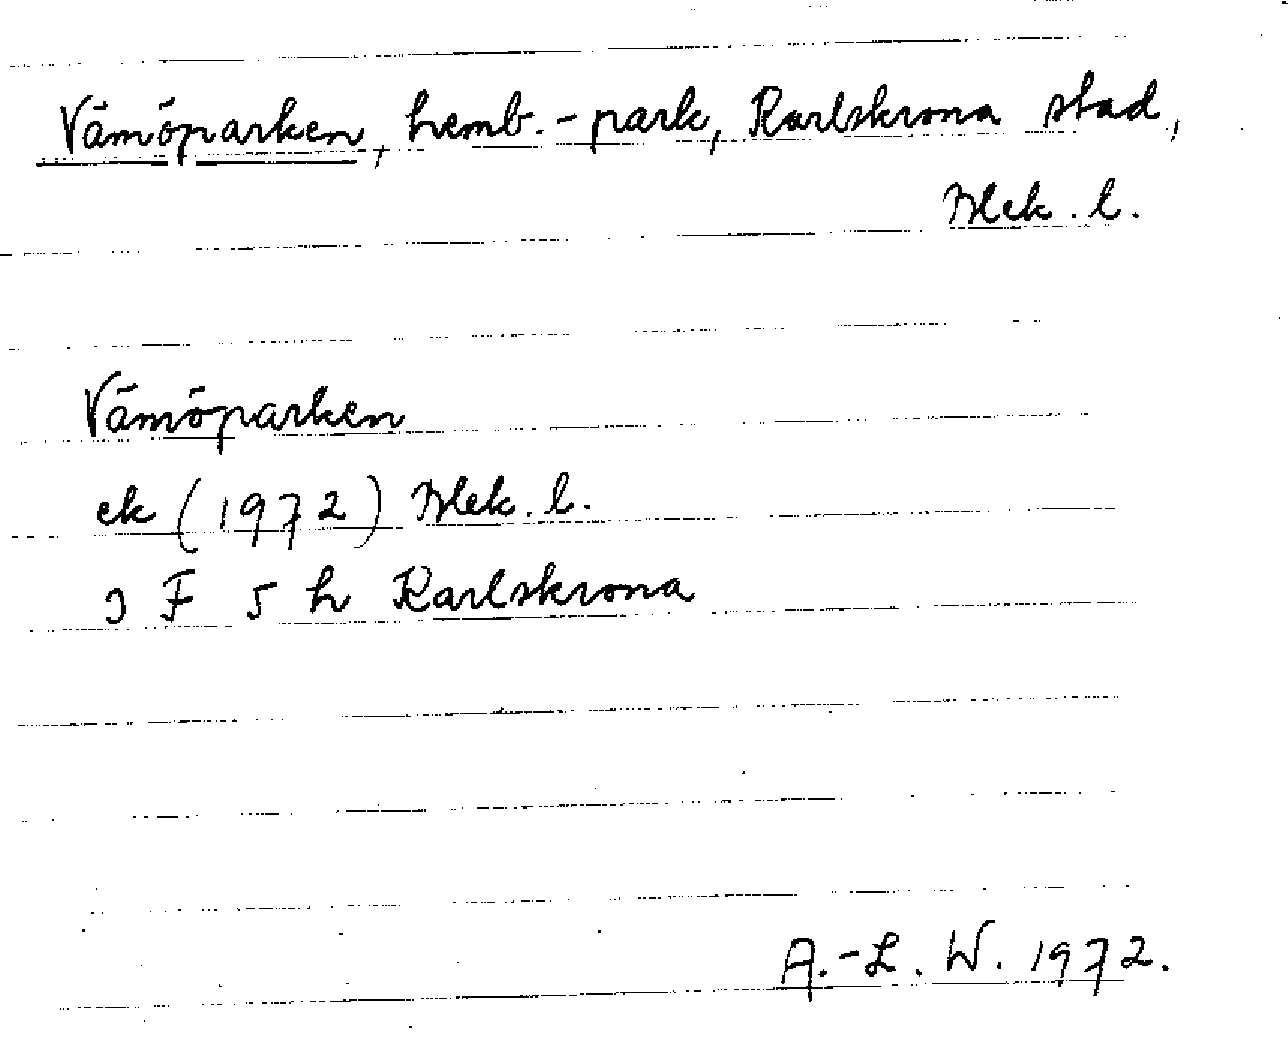 Vämöparken, hemb.-park, Karlskrona stad,
Blek. l.
Vämöparken
ek (1972) Blek. l.
3 F 5 h Karlskrona
A.-L. W. 1972.